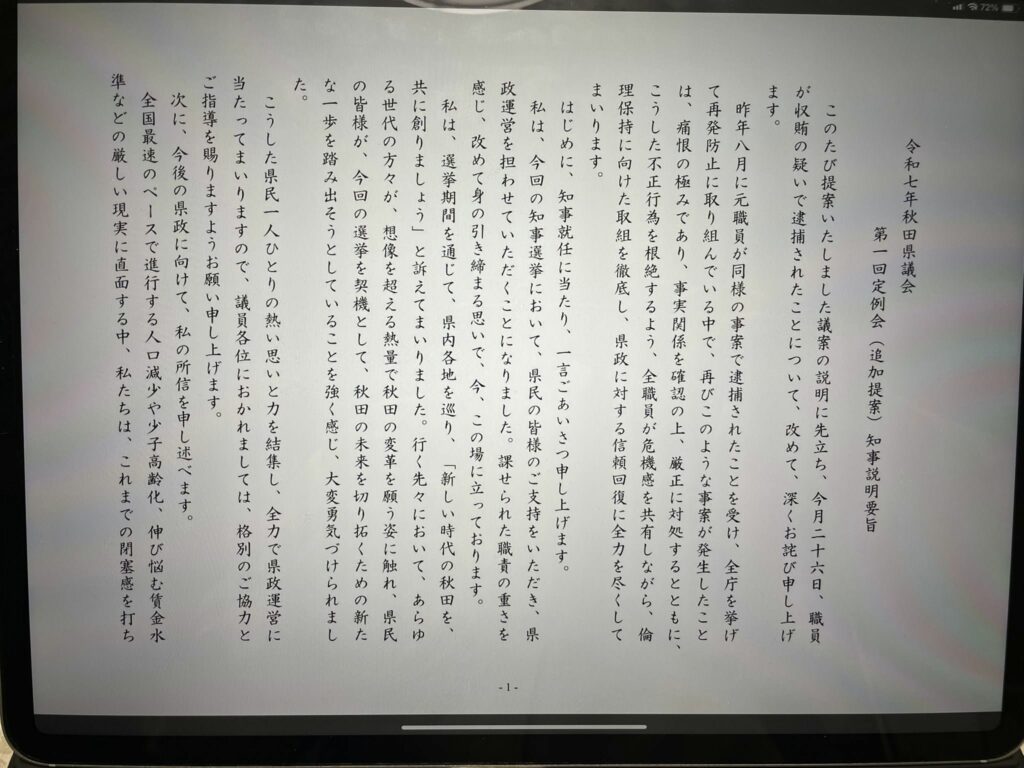 72%
令和七年秋田県議会
第一回定例会(追加提案)知事説明要旨
このたび提案いたしました議案の説明に先立ち、今月二十六日、職員
が収賄の疑いで逮捕されたことについて、改めて、深くお詫び申し上げ
ます。
昨年八月に元職員が同様の事案で逮捕されたことを受け、全庁を挙げ
て再発防止に取り組んでいる中で、再びこのような事案が発生したこと
は、痛恨の極みであり、事実関係を確認の上、厳正に対処するとともに、
こうした不正行為を根絶するよう、全職員が危機感を共有しながら、倫
理保持に向けた取組を徹底し、県政に対する信頼回復に全力を尽くして
まいります。
はじめに、知事就任に当たり、一言ごあいさつ申し上げます。
私は、今回の知事選挙において、県民の皆様のご支持をいただき、県
政運営を担わせていただくことになりました。課せられた職責の重さを
感じ、改めて身の引き締まる思いで、今、この場に立っております。
私は、選挙期間を通じて、県内各地を巡り、「新しい時代の秋田を、
共に創りましょう」と訴えてまいりました。行く先々において、あらゆ
る世代の方々が、想像を超える熱量で秋田の変革を願う姿に触れ、県民
の皆様が、今回の選挙を契機として、秋田の未来を切り拓くための新た
な一歩を踏み出そうとしていることを強く感じ、大変勇気づけられまし
た。
こうした県民一人ひとりの熱い思いと力を結集し、全力で県政運営に
当たってまいりますので、議員各位におかれましては、格別のご協力と
ご指導を賜りますようお願い申し上げます。
次に、今後の県政に向けて、私の所信を申し述べます。
全国最速のペースで進行する人口減少や少子高齢化、伸び悩む賃金水
準などの厳しい現実に直面する中、私たちは、これまでの閉塞感を打ち
-1-